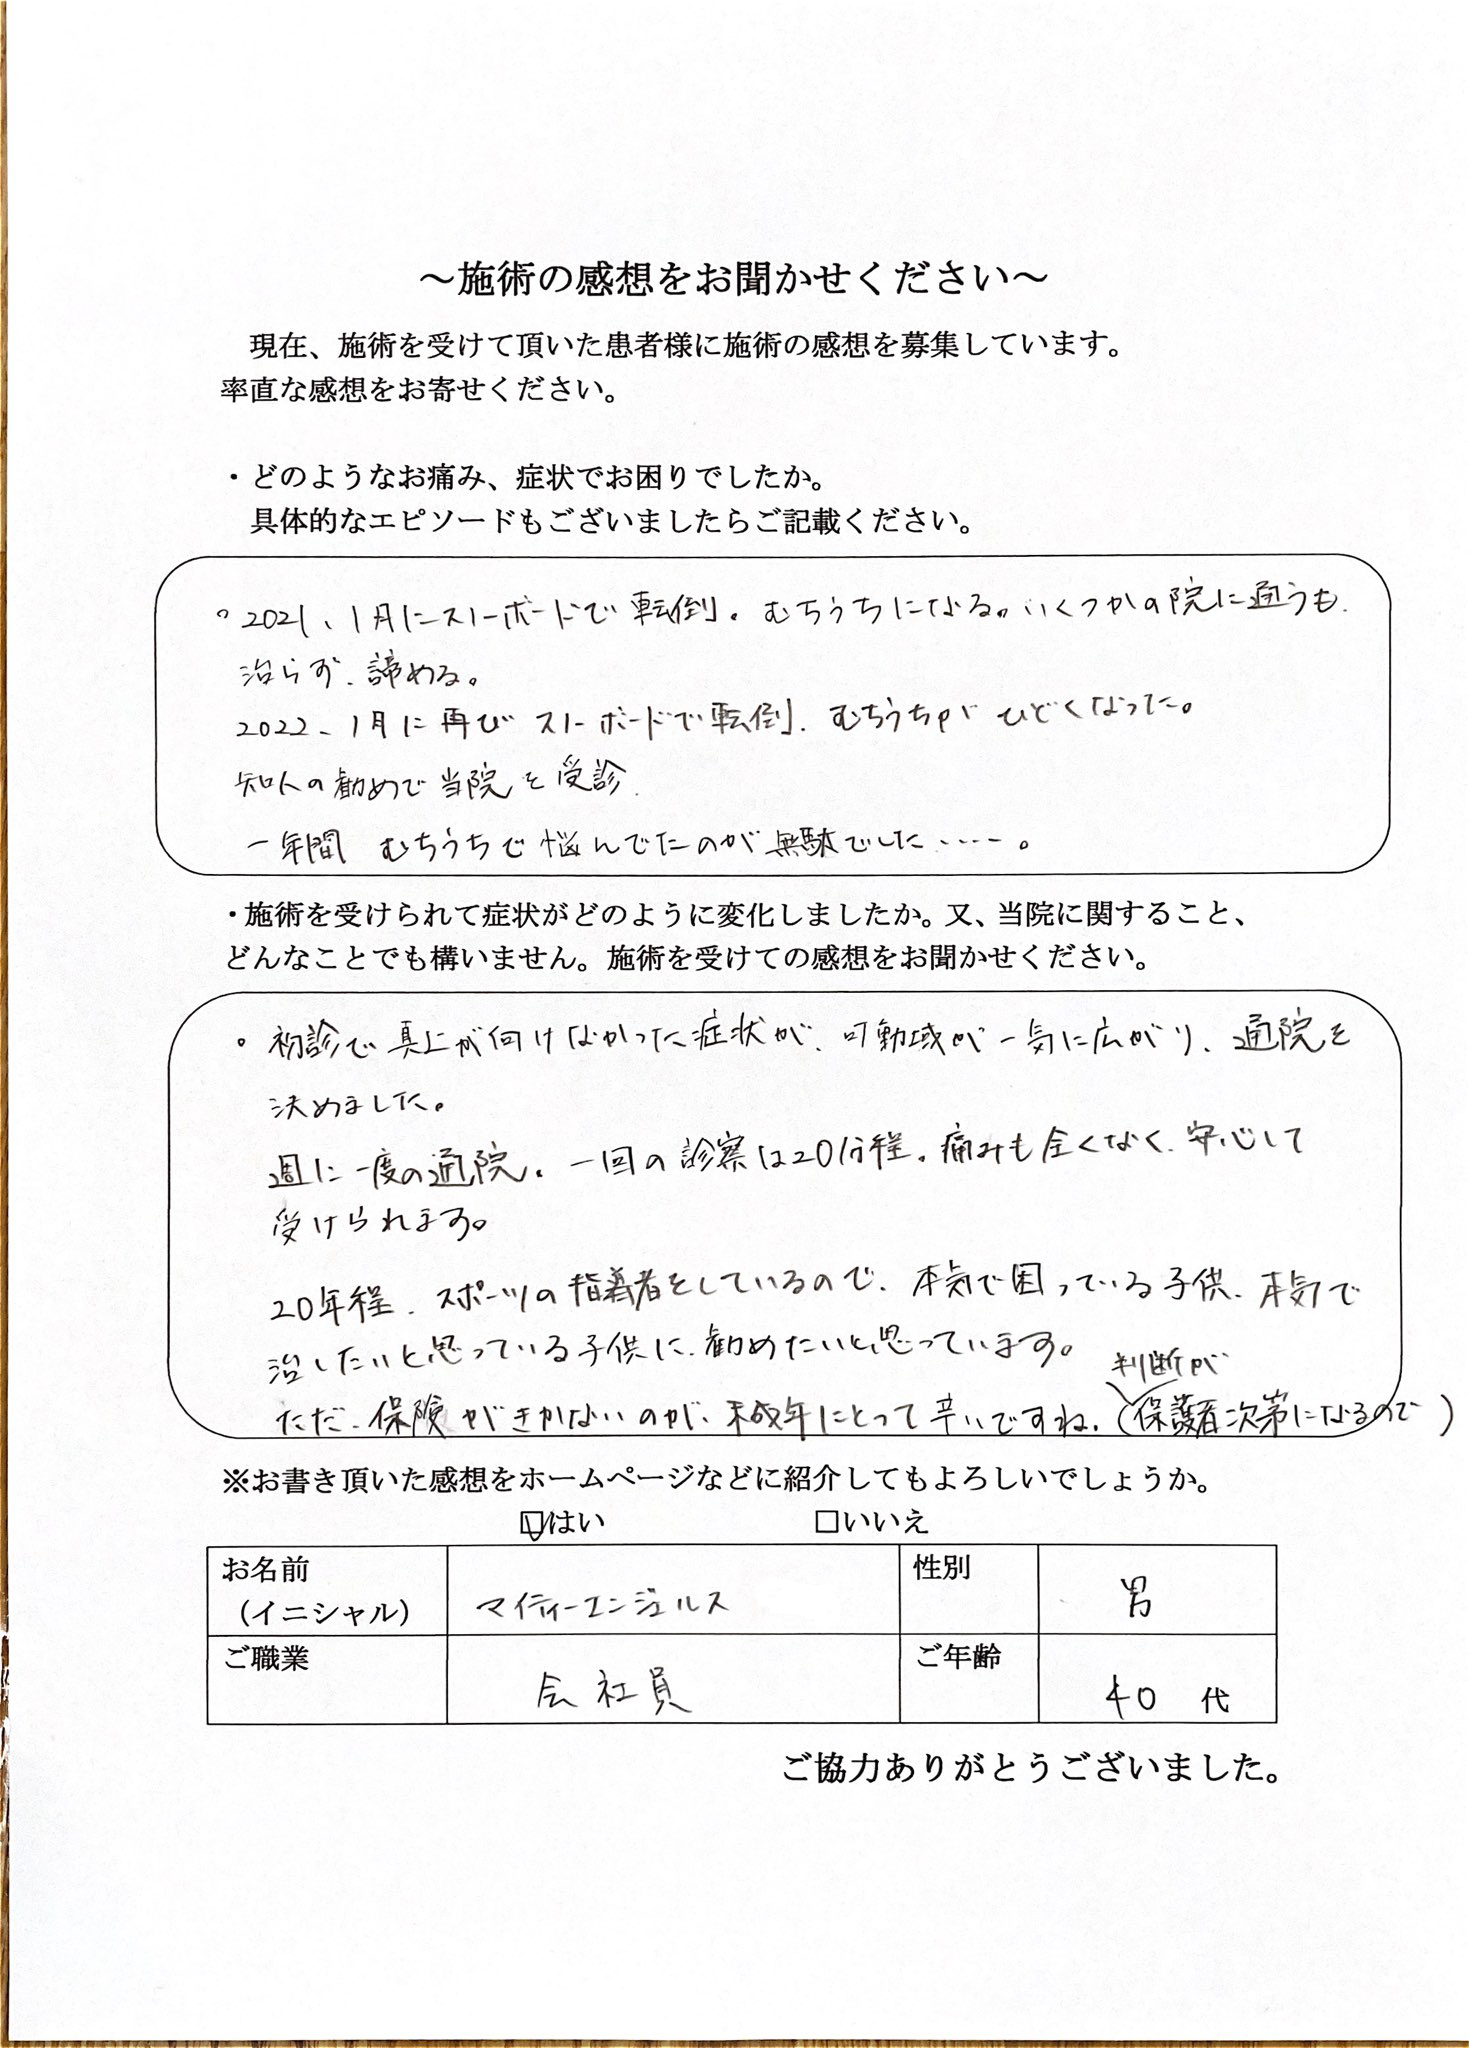 ～施術の感想をお聞かせください～
現在、施術を受けて頂いた患者様に施術の感想を募集しています。
率直な感想をお寄せください。
・どのようなお痛み、症状でお困りでしたか。
具体的なエピソードもございましたらご記載ください。
・2021、1月にスノーボードで転倒。むちうちになる。いくつかの院に通うも、
治らず、諦める。
2022、1月に再びスノーボードで転倒、むちうちがひどくなった。
知人の勧めで当院を受診、
一年間 むちうちで悩んでたのが無駄でした‥‥‥。
・施術を受けられて症状がどのように変化しましたか。又、当院に関すること、
どんなことでも構いません。施術を受けての感想をお聞かせください。
・初診で真上が向けなかった症状が、可動域が一気に広がり、通院を
決めました。
週に一度の通院。一回の診察は20分程。痛みも全くなく、安心して
受けられます。
20年程、スポーツの指導者をしているので、本気で困っている子供、本気で
治したいと思っている子供に、勧めたいと思っています。
判断が
ただ、保険がきかないのが、未成年にとって辛いですね、（保護者次第になるので）
※お書き頂いた感想をホームページなどに紹介してもよろしいでしょうか。
☑はい □いいえ
お名前 性別
（イニシャル） マイティーエンジェルス 男
ご職業 ご年齢
会社員 40 代
ご協力ありがとうございました。